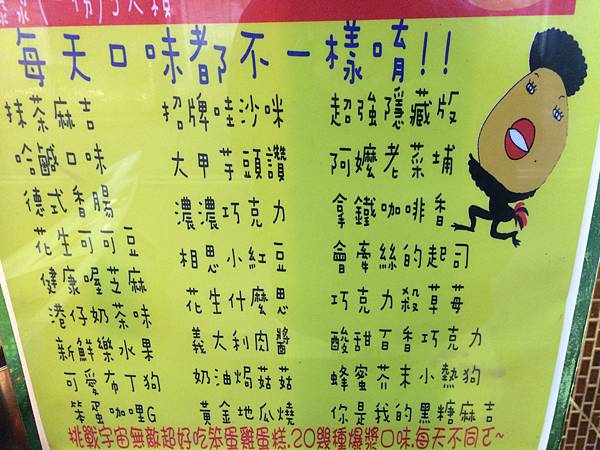 每天口味都不一樣唷!!
抹茶麻吉
哈鹹口味
德式香腸
花生可可豆
健康喔芝麻
港仔奶茶味
新鮮樂水果
可愛布丁狗
笨蛋咖哩G
招牌哇沙咪
大甲芋頭讚
濃濃巧克力
相思小紅豆
花生什麼思
義大利肉醬
奶油焗菇菇
黃金地瓜燒
超強隱藏版
阿嬤老菜埔
拿鐵咖啡香
會牽絲的起司
巧克力殺草莓
酸甜百香巧克力
蜂蜜芥末小熱狗
你是我的黑糖麻吉
挑戰宇宙無敵超好吃笨蛋雞蛋糕.20幾種爆漿口味.每天不同ㄛ~